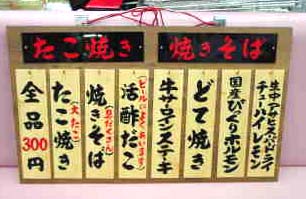 たこ焼き 焼きそば
生中アサヒスーパードライ
チューハイレモン
国産びっくりホルモン
どて焼き
牛サーロインステーキ
(ビールによくあいます)
活酢だこ
(具だくさん)
焼きそば
(大たこ)
たこ焼き
全品300円